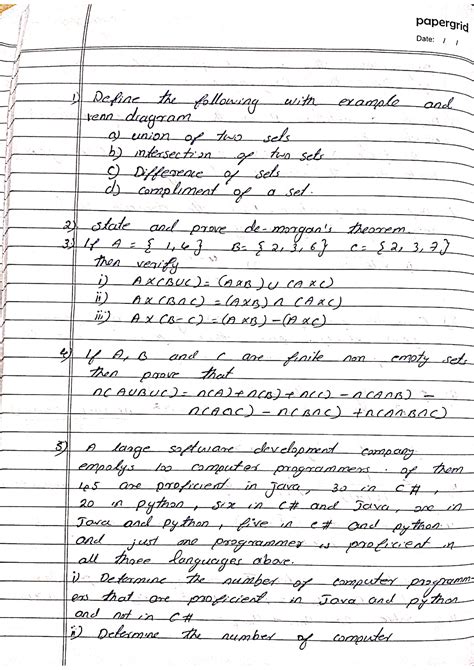 papergrid
Date: / /
1) Define the following with example and
venn diagram
a) union of two sets
b) intersection of two sets
c) Difference of sets
d) compliment of a set.
2) State and prove de-morgan's theorem.
3) If A = { 1, 4 } B = { 2, 3, 6 } C = { 2, 3, 7 }
then verify
i) A×(B∪C) = (A×B) ∪ (A×C)
ii) A×(B∩C) = (A×B) ∩ (A×C)
iii) A×(B-C) = (A×B) - (A×C)
4) If A, B and C are finite non empty sets
then prove that
n(A∪B∪C) = n(A) + n(B) + n(C) - n(A∩B) -
n(A∩C) - n(B∩C) + n(A∩B∩C)
5) A large software development company
employs 100 computer programmers. of them
45 are proficient in Java, 30 in C#,
20 in python, six in C# and Java, one in
Java and python, five in C# and python
and just one programmer is proficient in
all three languages above.
i) Determine the number of computer programm-
ers that are proficient in Java and python
and not in C#
ii) Determine the number of computer